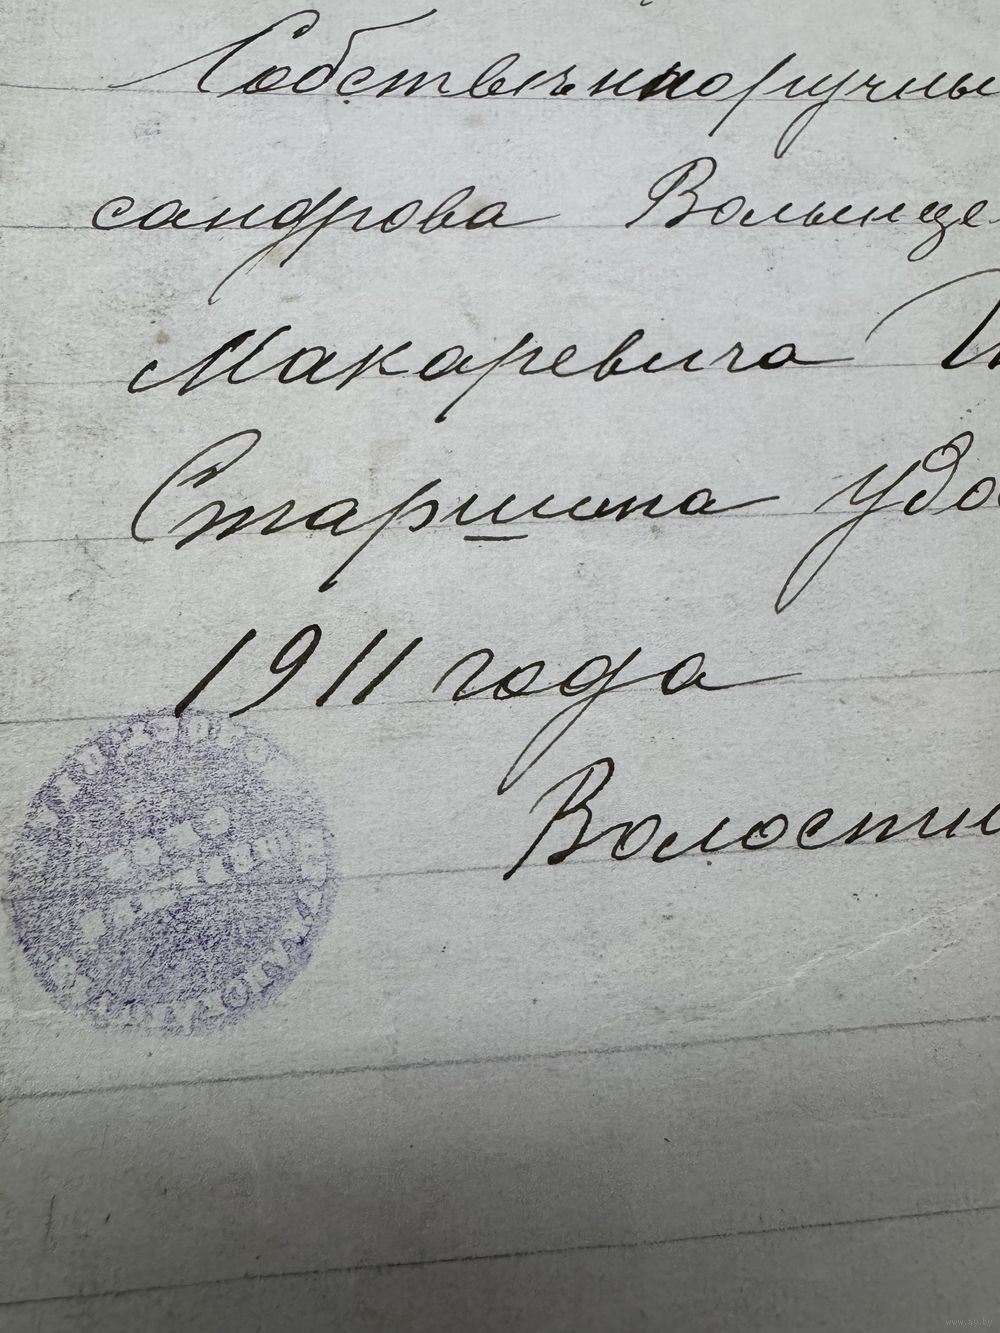 Собствѣнноручны
сандрова Волынце
Макаревича
Старшина удо
1911 года
Волостн
www.ay.by